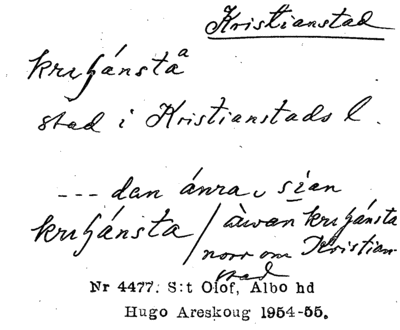 Kristianstad
kruʃánsta a
stad i Kristianstads l.
--- dan ánra sian
kruʃánsta / àwan kruʃánsta
norr om Kristian-
stad
Nr 4477. S:t Olof, Albo hd
Hugo Areskoug 1954-55.